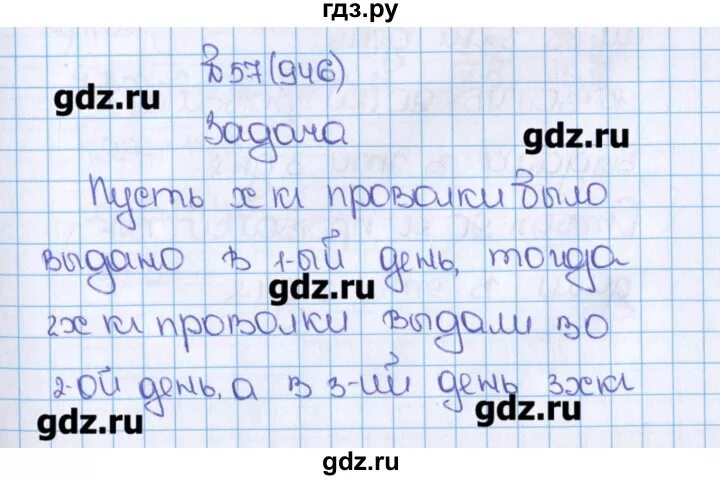 гдз.ру
№57(946)
gdz.ru
Задача
gdz.ru
Пусть х кг проволки было
выдано в 1-ый день, тогда
gdz.ru
2х кг проволки выдали во
2-ой день, а в 3-ий день 3х кг
gdz.ru
gdz.ru
gdz.ru